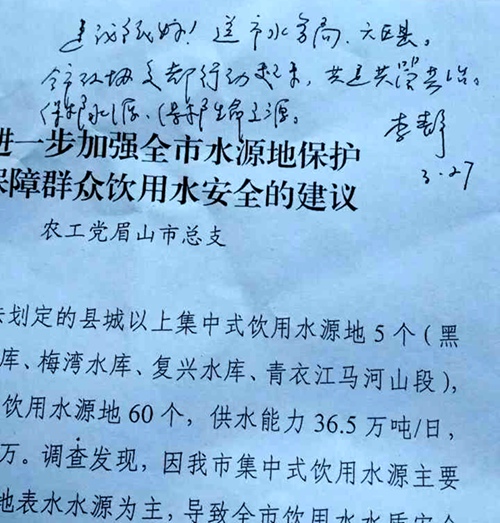 建议很好！送市水务局、六区县。
全市政协委都行动起来，共建共管共治。
保护水源，保护生命之源。
李静
3.27
进一步加强全市水源地保护
保障群众饮用水安全的建议
农工党眉山市总支
划定的县城以上集中式饮用水源地5个（黑
库、梅湾水库、复兴水库、青衣江马河山段），
饮用水源地60个，供水能力36.5万吨/日，
万。调查发现，因我市集中式饮用水源主要
地表水水源为主，导致全市饮用水水质安全